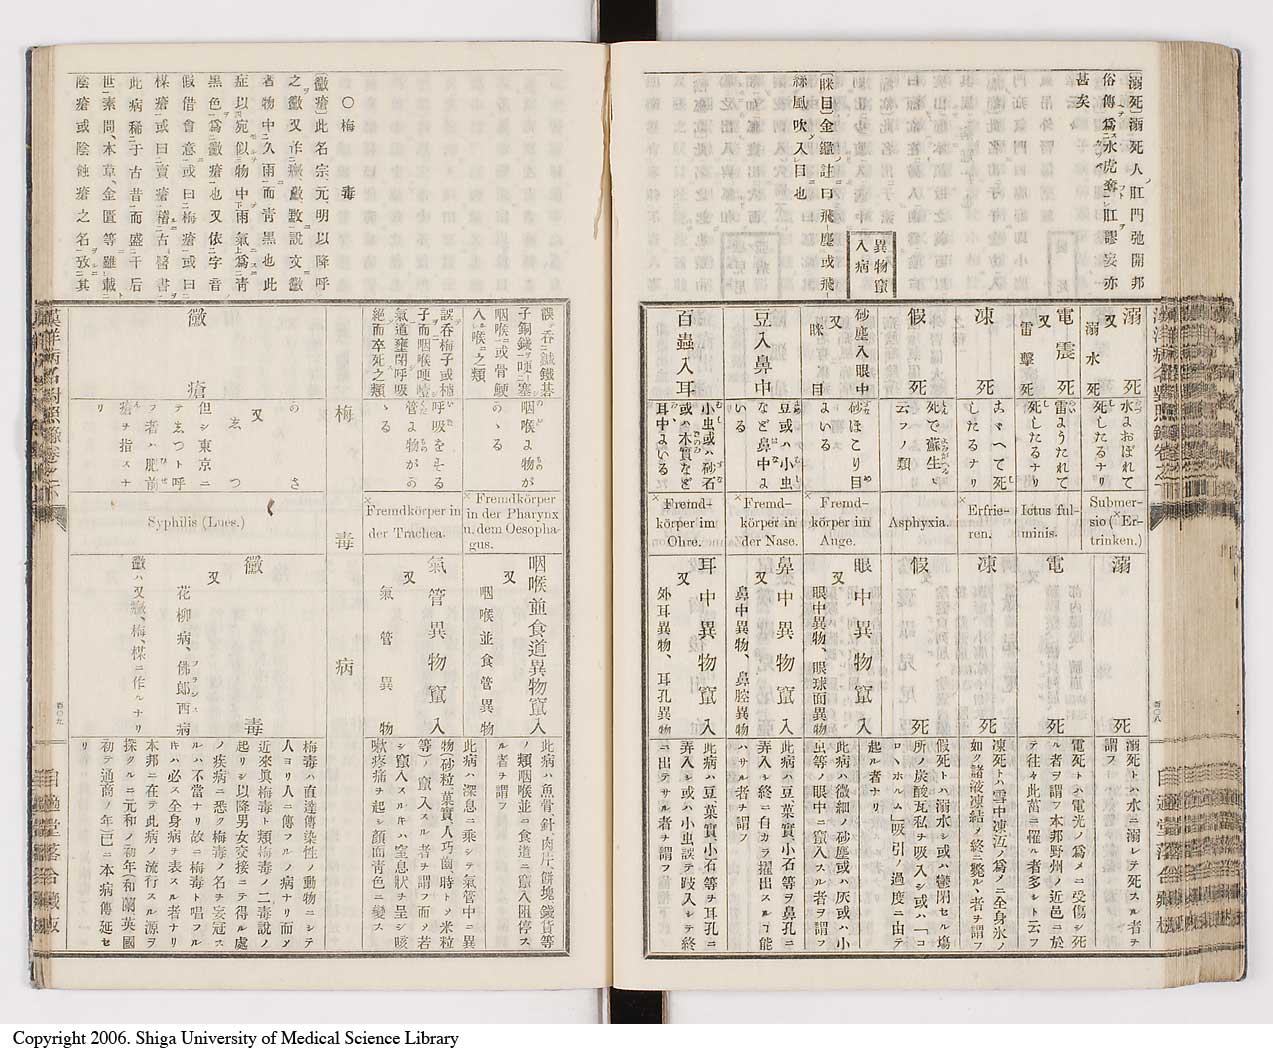 〔溺死〕溺死人肛門弛開邦
俗傳爲水虎奪肛謬妄亦
甚矣
異物竄
入病
〔眯目〕金鑑註曰飛塵或飛
絲風吹入目也
溺死
又
溺水
電震死
又
雷擊死
凍死
假死
砂塵入眼中
又
眯目
豆入鼻中
百蟲入耳
水よおぼれて
死したるなり
雷ようたれて
死したるナリ
こゞへて死
したるなり
死で蘇生し
云フノ類
砂ほこり目
よいる
豆或ハ小虫
など鼻中よ
いる
小虫或ハ砂石
或ハ木實など
耳中よいる
Submer-
sio (Er-
trinken.)
Ictus ful-
minis.
Erfrie-
ren.
Asphyxia.
Fremd-
körper im
Auge.
Fremd-
körper in
der Nase.
Fremd-
körper im
Ohre.
溺死
電死
凍死
假死
眼中異物竄入
又
眼中異物、眼球面異物
鼻中異物竄入
又
鼻中異物、鼻腔異物
耳中異物竄入
又
外耳異物、耳孔異物
溺死トハ水ニ溺レテ死スル者ヲ
謂フ
電死トハ電光ノ爲メニ受傷シ死
ル者ヲ謂フ本邦野州ノ近邑ニ於
テ往々此菑ニ罹ル者多シト云フ
凍死トハ雪中凍沍ノ爲メニ全身氷ノ
如ク諸液凍結ノ終ニ斃ル、者ヲ謂フ
假死トハ溺水シ或ハ鬱閉セル塲
所ノ炭酸瓦私ヲ吸入シ或ハ「コ
ロヽホルム」吸引ノ過度ニ由テ
起ル者ナリ
此病ハ微細ノ砂塵或ハ灰或ハ小
虫等ノ眼中ニ竄入スル者ヲ謂フ
此病ハ豆菓實小石等ヲ鼻孔ニ
弄入シ終ニ自カラ擢出スル「能
ハサル者ヲ謂フ
此病ハ豆菓實小石等ヲ耳孔ニ
弄入シ或ハ小虫誤テ跂入シテ終
ニ出テサル者ヲ謂フ
〇梅毒
〔黴瘡〕此名宗、元、明以降呼
之黴又作癥黴說文黴
者物中久雨而靑黑也此
症以宛似物中雨氣爲靑
黑色爲黴瘡也又依字音
假借會意或曰梅瘡或曰
楳瘡或曰賣瘡稽古醫書
此病稀于古昔而盛于后
世素問、本草、金匱等雖載
陰瘡或陰蝕瘡之名攷其
誤テ吞鍼鐵碁
子銅錢ヲ哽塞
咽喉或骨鯁
入喉之類
誤吞梅子或棗
子而咽喉哽噎
氣道壅閉呼吸
絕而卒死之類
黴瘡
咽喉よ物が
のゝる
呼吸をする
管よ物がの
ゝる
梅毒病
のさ
又
ゑつ
但シ東京ニ
テゑつト呼
フ者ハ肥前
瘡ヲ指スナ
リ
Fremdkörper
in der Pharynx
u.dem Oesopha-
gus.
Fremdkörper in
der Trachea.
Syphilis (Lues.)
咽喉並食道異物竄入
又
咽喉並食管異物
氣管異物竄入
又
氣管異物
黴毒
又
花柳病、佛郞西病
黴ハ又癥、梅、楳ニ作ルナリ
此病ハ魚骨、針、肉片、餅塊、錢貨等
ノ類咽喉並ニ食道ニ竄入阻停ス
ル者ヲ謂フ
此病ハ深息ニ乘シテ氣管中ニ異
物(砂粒、菓實、人巧齒、時トメ米粒
等)ノ竄入スル者ヲ謂フ而ノ若
シ竄入スルキハ窒息狀ヲ呈シ咳
嗽疼痛ヲ起シ顏面靑色ニ變ス
梅毒ハ直達傳染性ノ動物ニシテ
人ヨリ人ニ傳フルノ病ナリ而メ
近來眞梅毒ト類梅毒ノ二毒說ノ
起リシ以降男女交接ニテ得ル處
ノ疾病ニ悉ク梅毒ノ名ヲ妄冠ス
ルハ不當ナリ故ニ梅毒ト唱フル
キハ必ス全身病ヲ表スル者ナリ
本邦ニ在テ此病ノ流行スル源ヲ
探クルニ元和ノ初年和蘭、英國
初テ通商ノ年已ニ本病傳延セ
リ
Copyright 2006. Shiga University of Medical Science Library